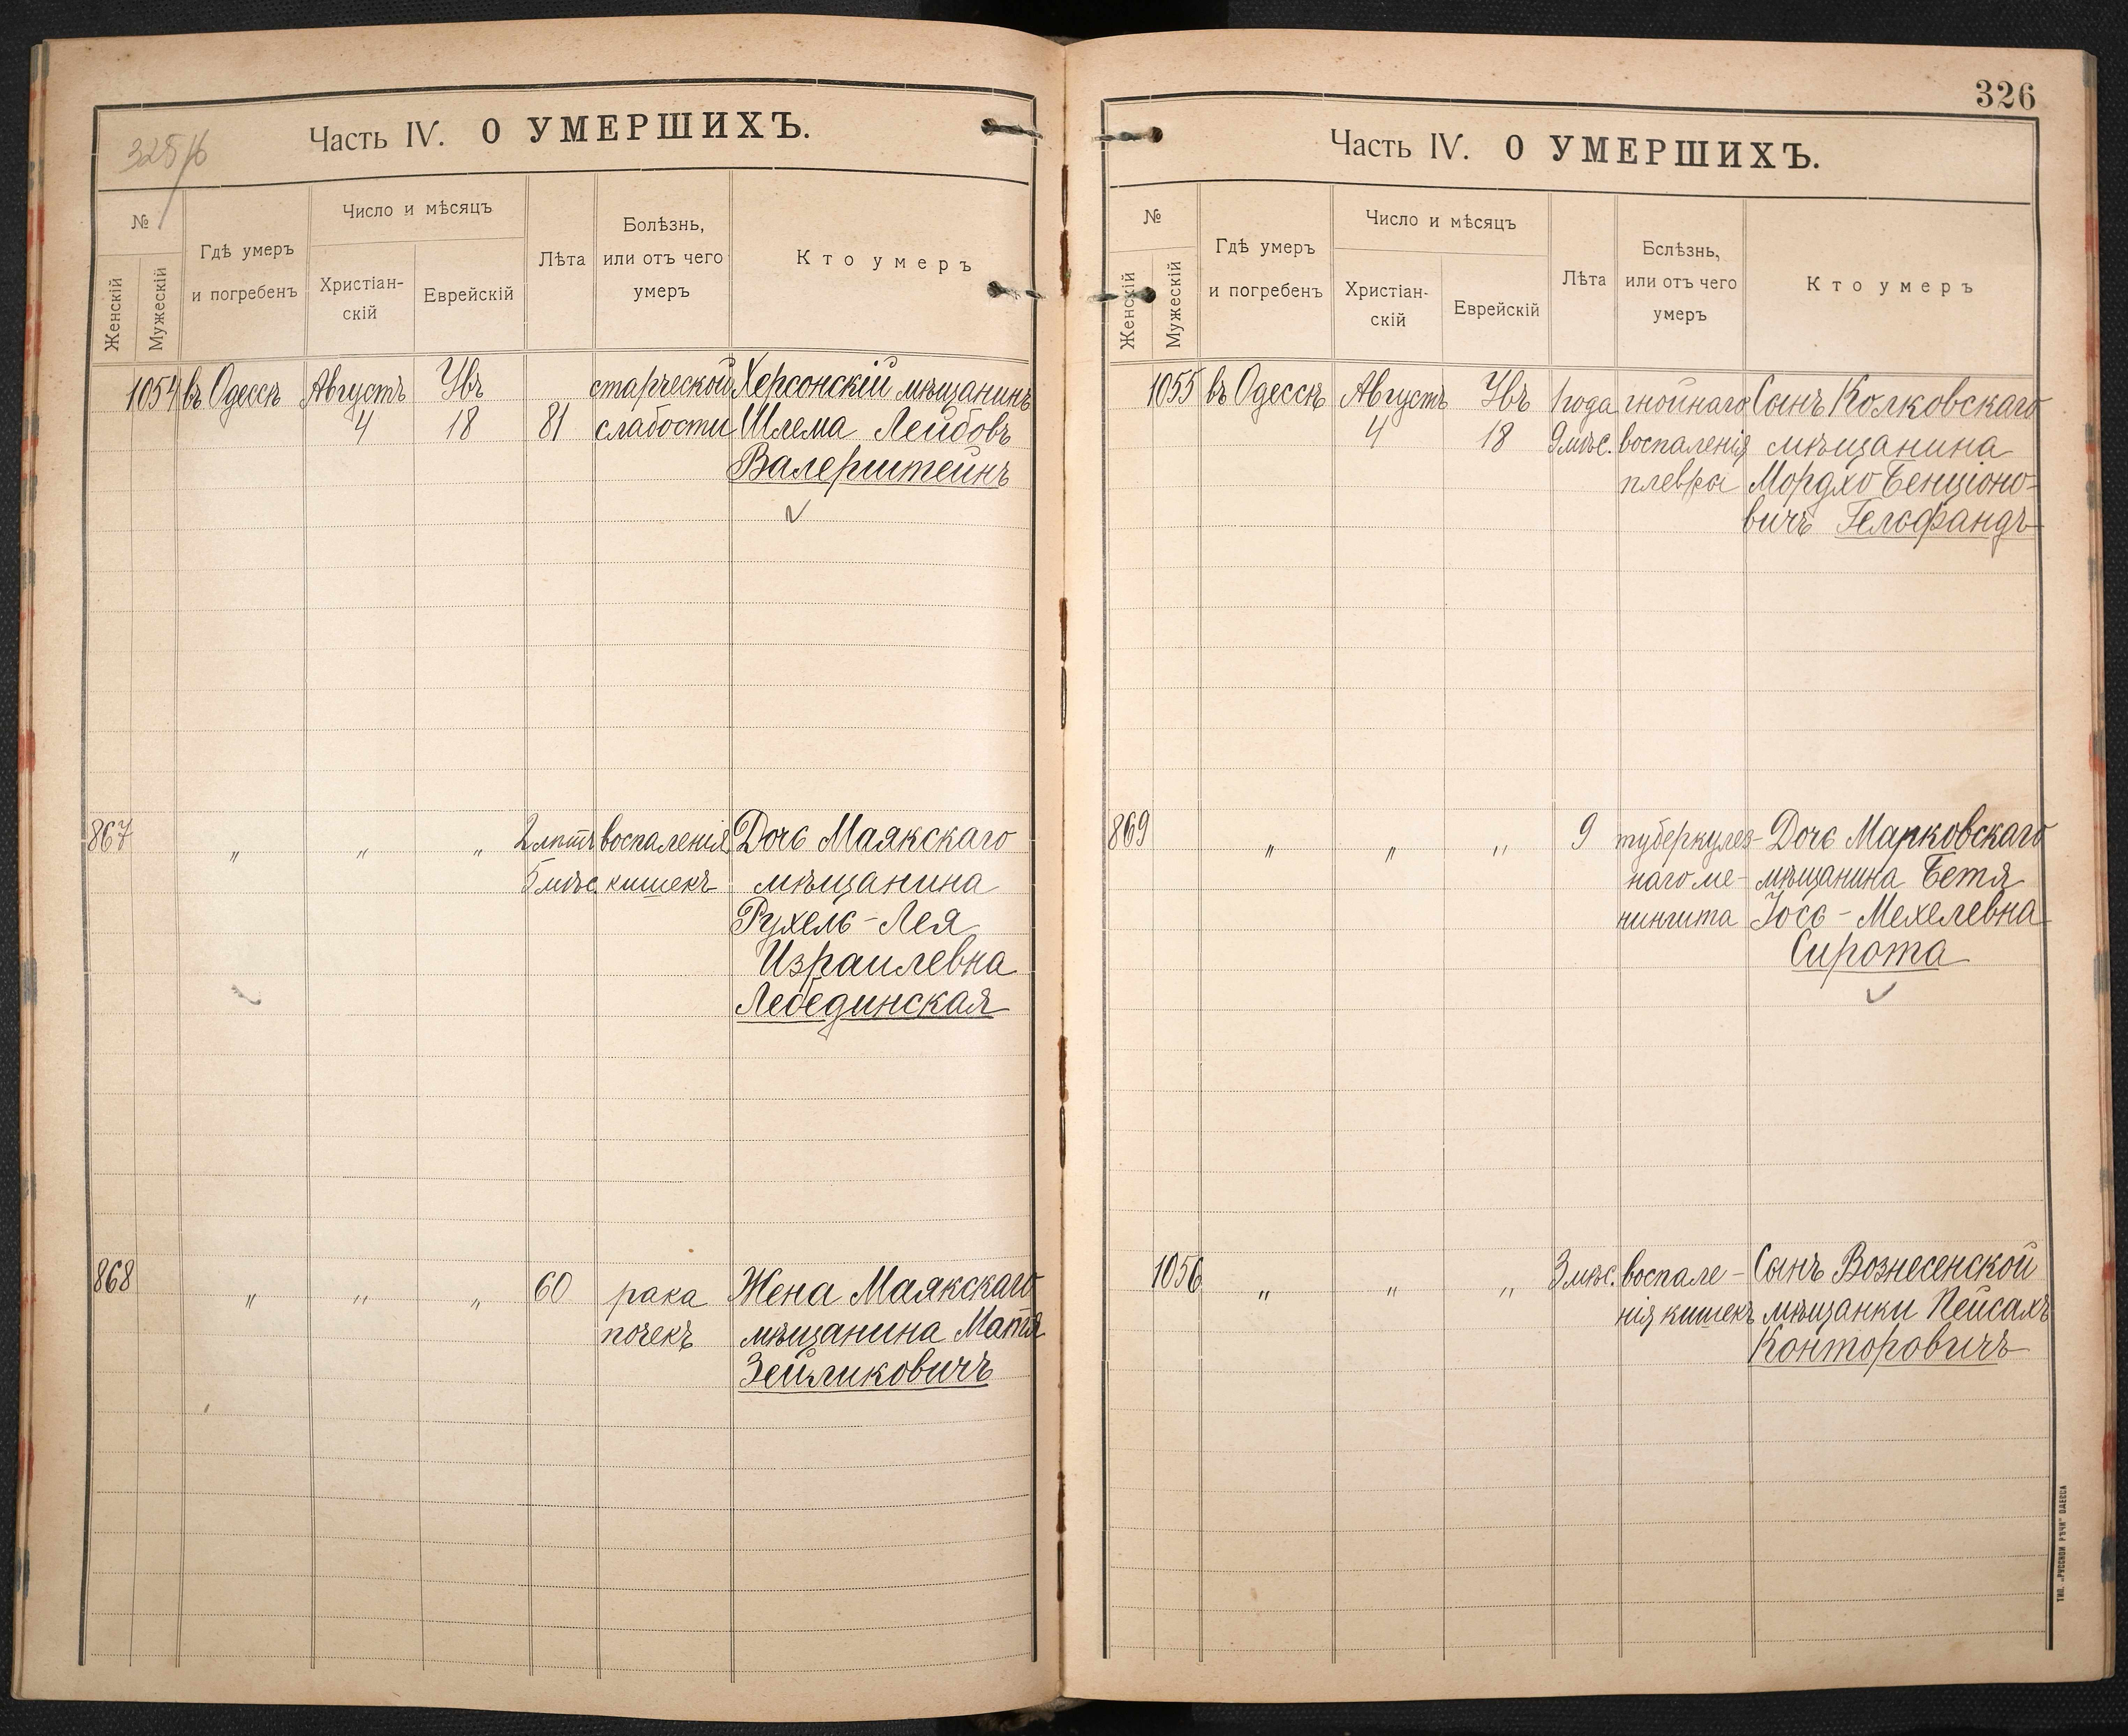 325/б
Часть IV. О УМЕРШИХЪ.
№
Женскій
Мужескій
Гдѣ умеръ
и погребенъ
Число и мѣсяцъ
Христіан-
скій
Еврейскій
Лѣта
Болѣзнь,
или отъ чего
умеръ
Кто умеръ
1054 въ Одессѣ Августъ Увъ старческой Херсонскій мѣщанинъ
4 18 81 слабости Шлема Лейбовъ
Валерштейнъ
867 " " " 2 лѣтъ воспаленія Дочь Маякскаго
5 мѣс. кишекъ мѣщанина
Рухель-Лея
Израилевна
Лебединская
868 " " " 60 рака Жена Маякскаго
почекъ мѣщанина Матя
Зейликовичъ
326
Часть IV. О УМЕРШИХЪ.
№
Женскій
Мужескій
Гдѣ умеръ
и погребенъ
Число и мѣсяцъ
Христіан-
скій
Еврейскій
Лѣта
Бслѣзнь,
или отъ чего
умеръ
Кто умеръ
1055 въ Одессѣ Августъ Увъ 1 года гнойнаго Сынъ Колковскаго
4 18 9 мѣс. воспаленія мѣщанина
плевры Мордхо Бенціоно-
вичъ Гельфандъ
869 " " " 9 туберкулез- Дочь Марковскаго
наго ме- мѣщанина Бетя
нингита Іось-Мехелевна
Сирота
1056 " " " 3 мѣс. воспале- Сынъ Вознесенской
нія кишекъ мѣщанки Пейсахъ
Конторовичъ
ТИП. „РУССКОЙ РѢЧИ" ОДЕССА